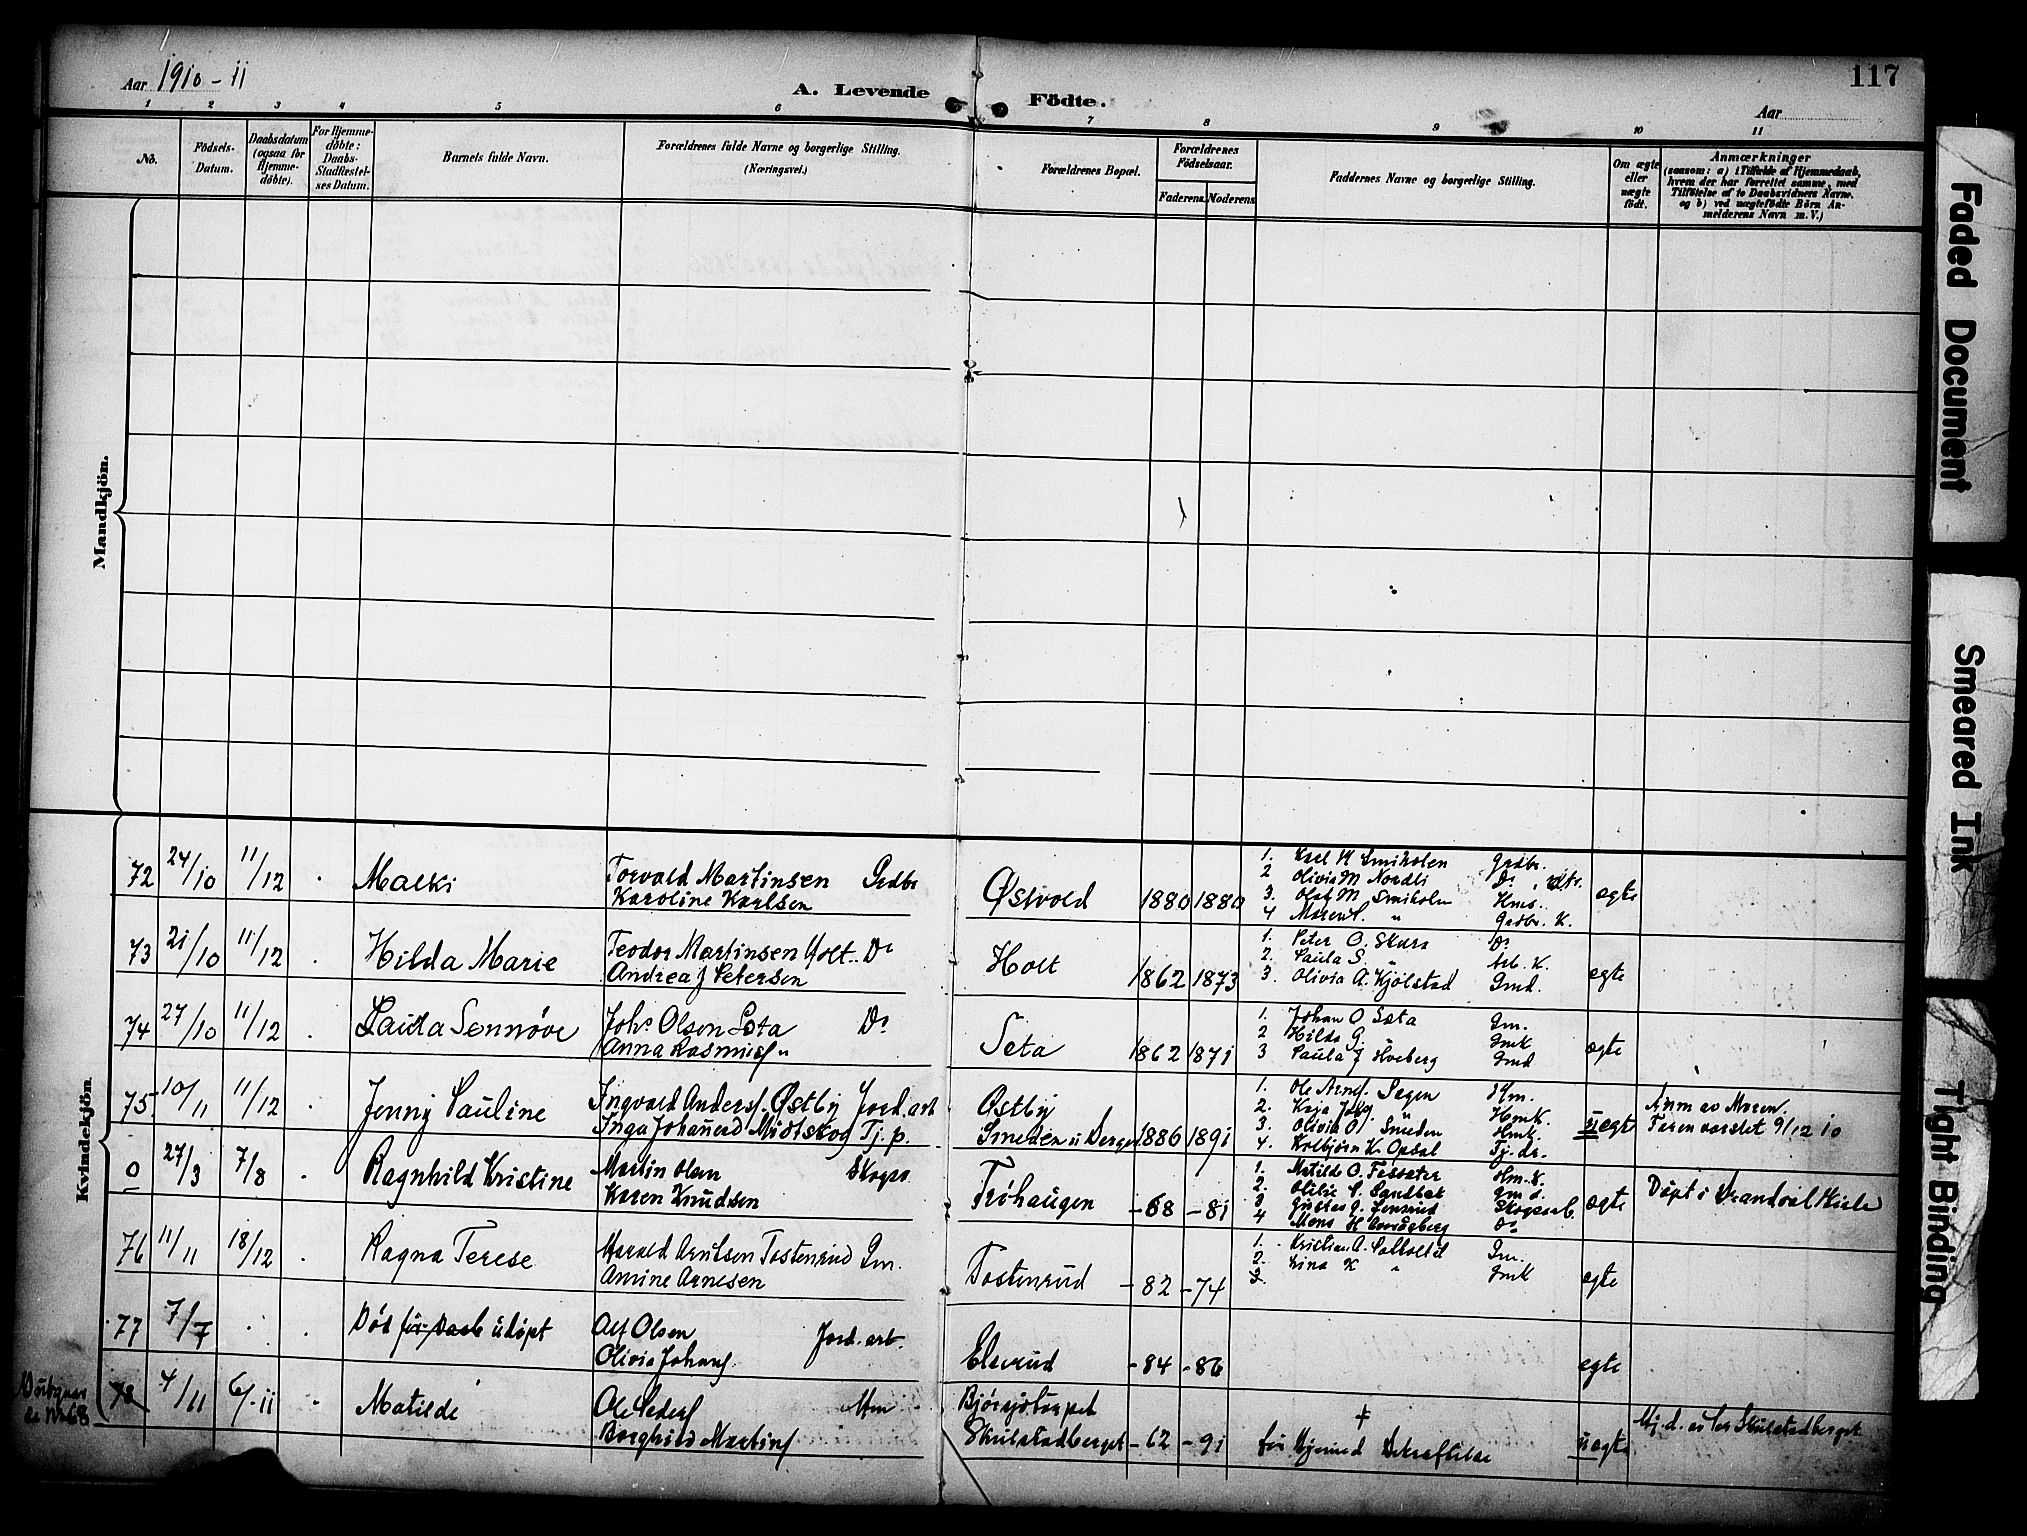 Aar 1910-11
A. Levende Födte.
117
Aar
1 2 3 4 5 6 7 8 9 10 11
No.
Födsels-
Datum.
Daabsdatum
(ogsaa for
Hjemme-
döbte).
For Hjemme-
döbte:
Daabs-
Stadfæstel-
ses Datum.
Barnets fulde Navn.
Forældrenes fulde Navne og borgerlige Stilling.
(Næringsvei.)
Forældrenes Bopæl.
Forældrenes
Födselsaar.
Faderens. Moderens.
Faddernes Navne og borgerlige Stilling.
Om ægte
eller
uægte
födt.
Anmærkninger
(saasom: a) i Tilfælde af Hjemmedaab,
hvem der har forrettet samme, med
Tilföielse af to Daabsvidners Navne.
og b) ved uægtefödte Börn An-
melderens Navn m. V.)
Mandkjön.
Kvindekjön.
72 24/10 11/12 Malki
Torvald Martinsen Grdbr
Karoline Karlsen
Østvold 1880 1880
1. Smiholen Grdbr.
2 Olivia M Nordli Do
3. Olaf M Smiholen Hms.
4 Maren Grdbr. K.
egte
73 21/10 11/12 Hilda Marie
Teodor Martinsen Holt Do
Andrea J Petersen
Holt 1862 1873
1. Peter O. Skara Do
2. Paula S. " Arb. K.
3. Olivia A. Kjölstad Gmd.
egte
74 27/10 11/12 Laida Sennöve
Johs Olsen Sæta Do
Anna Rasmusf "
Seta 1862 1871
1. Johan O Sæta Gm.
2 Hilda G. " GmK
3 Paula J Hveberg Gmd
egte
75 10/11 11/12 Jenny Pauline
Ingvald Andersf. Østby Jord. arb
Inga Johansd Midtskog Tj. p.
Østby
Smeden u Berget 1886 1891
1. Ole Arnef. Sagen Hm.
2. Kaja " HmK.
3. Olivia O Smeden Hmk.
4. Kolbjörn K. Opdal Tj. dr.
uegte
Anm av Moren.
Feren varslet 9/12 10
0 27/3 7/8 Ragnhild Kristine
Martin Olsen Skogsa
Karen Knudsen
Tröhaugen -68 -81
1. Matilde O. Hm. K.
2. Otilie Sandbak Gm d.
3 Gustav Skogsarb.
4 Mons H Do
egte
Döpt i Brandval Kirke
76 11/11 18/12 Ragna Terese
Harald Arntsen Tostenrud Gm.
Annine Arnesen
Tostenrud -82 -74
1. Kristian A. Gm.
2. Lina K " GmK
3.
egte
77 7/7 Död för Daab udöpt
Alf Olsen Jord. arb.
Olivia Johansf.
Elsrud -84 -86
egte
78 4/11 6/-11 Matilde
Ole Pedersf Hm
Borghild Martinsf
Bjørsjötorpet
Skulstadberget -62 -91
† för Hjemmed Bekræftelse
uegte
Hj. d. av Skulstadberget
de Nr 68
Faded Document
Smeared Ink
Tight Binding